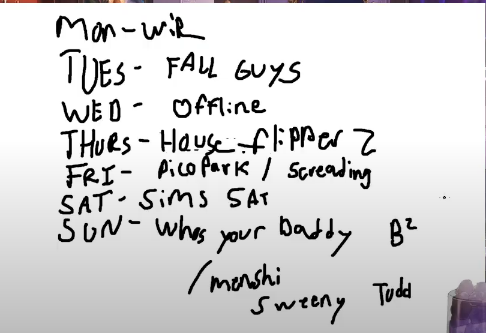 Mon - WiR
TUES - FALL GUYS
WED - Offline
THURS - House flipper 2
FRI - PicoPark / Screading
SAT - Sims SAT
SUN - Whos your Daddy B²
/ menshi
Sweeny Tudd